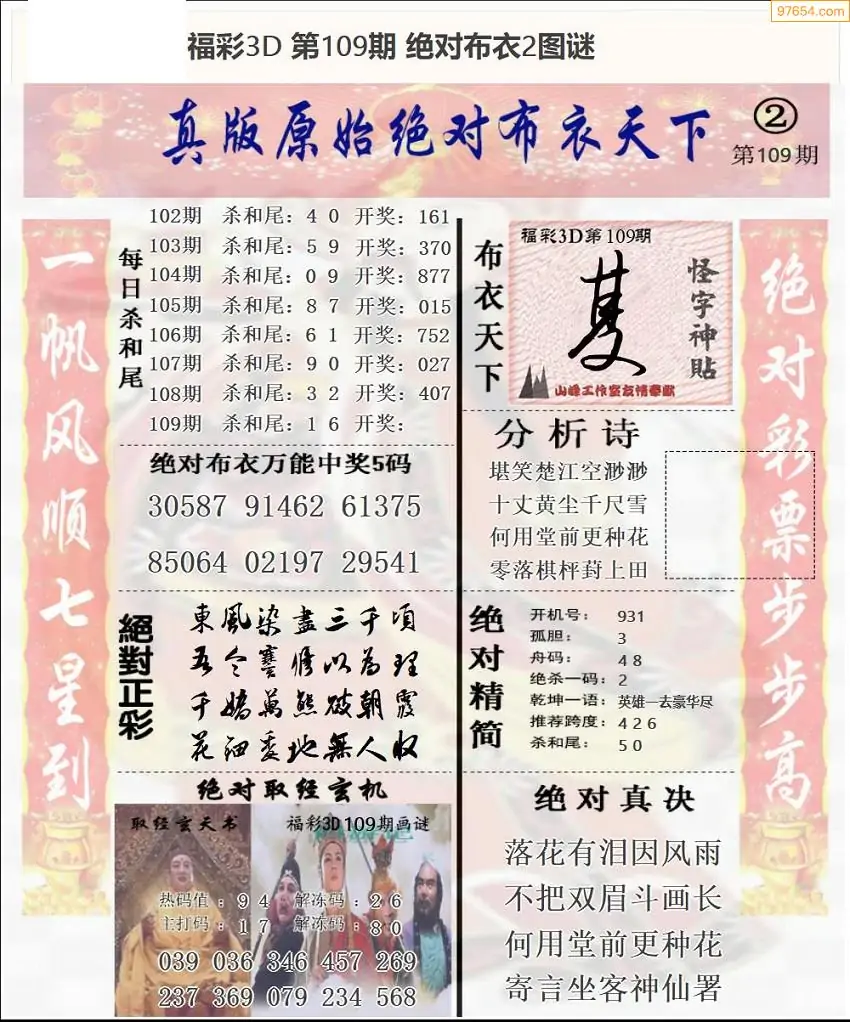 97654.com
福彩3D 第109期 绝对布衣2图谜
真版原始绝对布衣天下
②
第109期
一帆风顺七星到
每日杀和尾
102期 杀和尾：4 0 开奖：161
103期 杀和尾：5 9 开奖：370
104期 杀和尾：0 9 开奖：877
105期 杀和尾：8 7 开奖：015
106期 杀和尾：6 1 开奖：752
107期 杀和尾：9 0 开奖：027
108期 杀和尾：3 2 开奖：407
109期 杀和尾：1 6 开奖：
绝对布衣万能中奖5码
30587 91462 61375
85064 02197 29541
絕對正彩
東風染盡三千頃
千嬌萬態破朝霞
花細委地無人收
绝对取经玄机
取经玄天书
福彩3D109期画谜
热码值：9 4 解冻码：2 6
主打码：1 7 解冻码：8 0
039 036 346 457 269
237 369 079 234 568
布衣天下
福彩3D第109期
怪字神貼
山峰工作室友情奉献
分析诗
堪笑楚江空渺渺
十丈黄尘千尺雪
何用堂前更种花
零落棋枰葑上田
绝对精简
开机号： 931
孤胆： 3
舟码： 4 8
绝杀一码：2
乾坤一语：英雄一去豪华尽
推荐跨度：4 2 6
杀和尾： 5 0
绝对真决
落花有泪因风雨
不把双眉斗画长
何用堂前更种花
寄言坐客神仙署
绝对彩票步步高